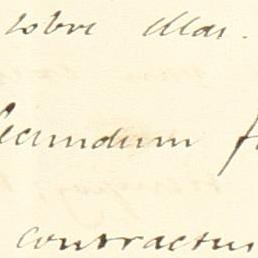 sobre illas.
secundum f
contractus